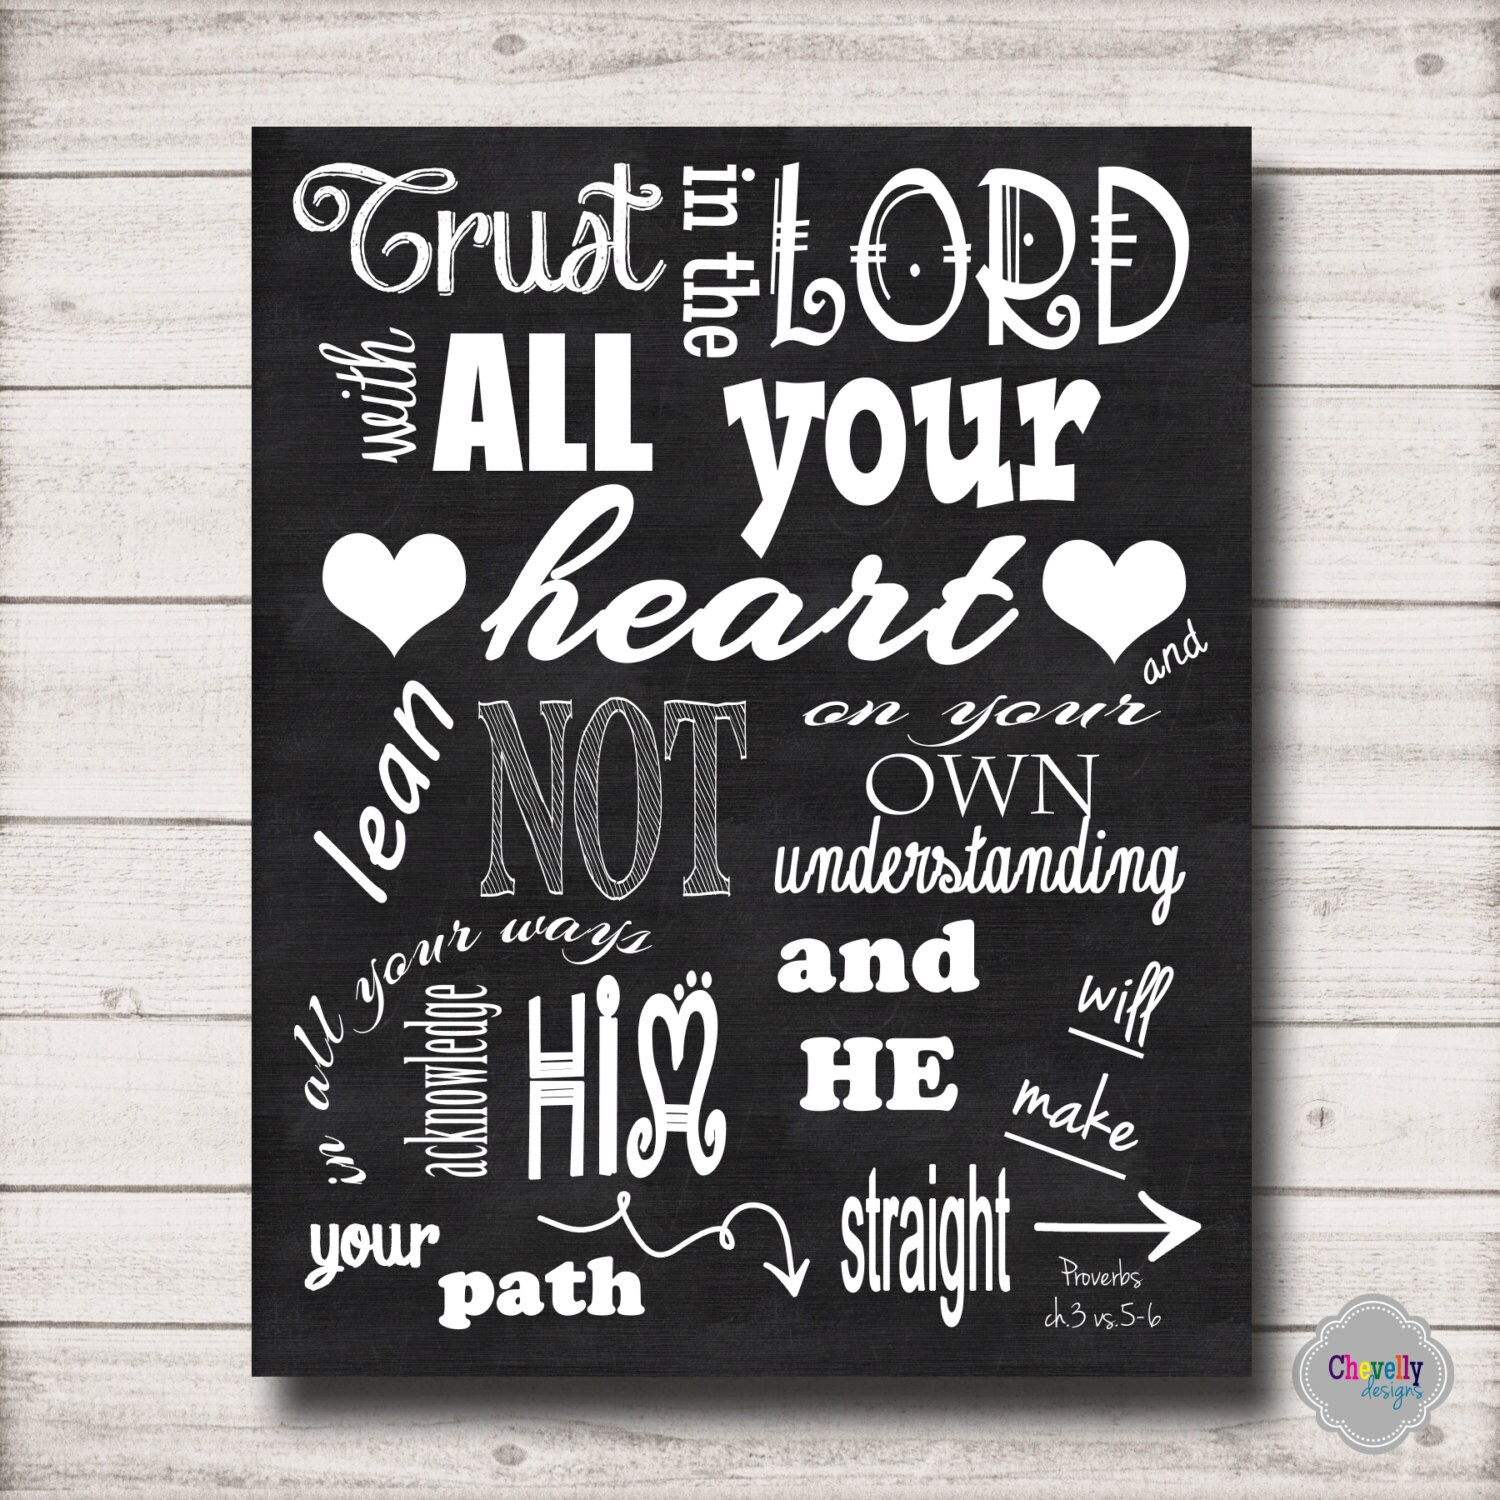 Trust in the LORD
with ALL your
heart and
lean NOT on your
OWN
understanding
in all your ways
acknowledge HiM
and
HE will
make
your
path straight
Proverbs
ch.3 vs.5-6
Chevelly
designs